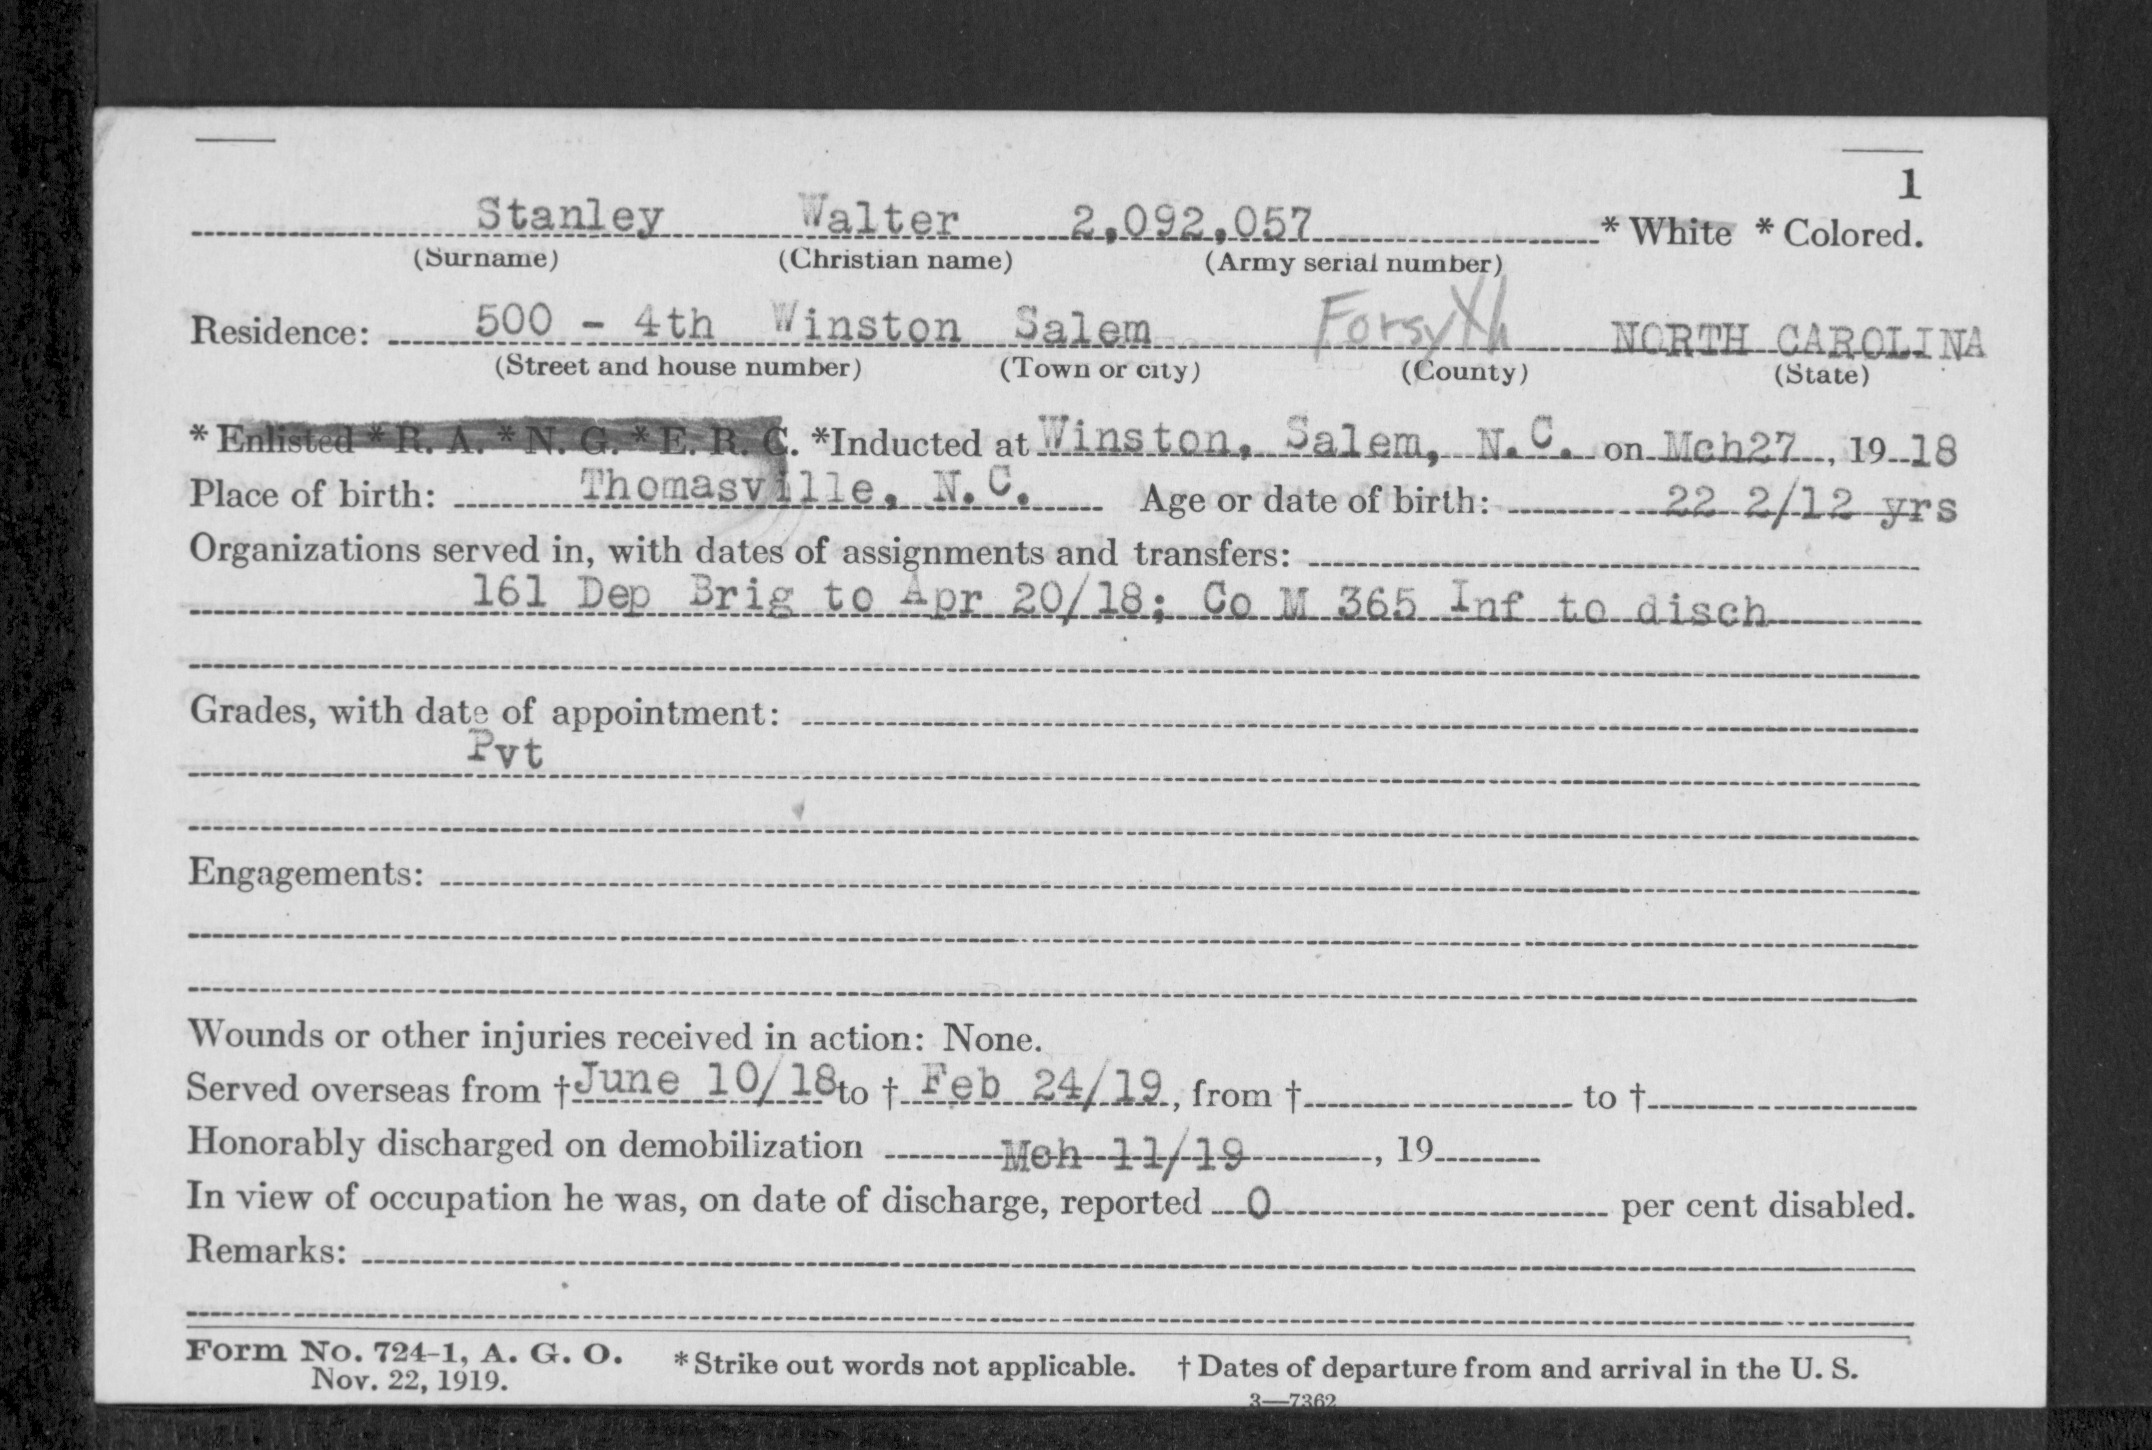 1
Stanley Walter 2,092,057 * White * Colored.
(Surname) (Christian name) (Army serial number)
Residence: 500 - 4th Winston Salem Forsyth NORTH CAROLINA
(Street and house number) (Town or city) (County) (State)
* Enlisted * R. A. * N. G. * E. R. C. *Inducted at Winston, Salem, N.C. on Mch27, 19 18
Place of birth: Thomasville, N.C. Age or date of birth: 22 2/12 yrs
Organizations served in, with dates of assignments and transfers:
161 Dep Brig to Apr 20/18; Co M 365 Inf to disch
Grades, with date of appointment:
Pvt
Engagements:
Wounds or other injuries received in action: None.
Served overseas from † June 10/18 to † Feb 24/19, from † to †
Honorably discharged on demobilization Mch 11/19, 19
In view of occupation he was, on date of discharge, reported 0 per cent disabled.
Remarks:
Form No. 724-1, A. G. O. * Strike out words not applicable. † Dates of departure from and arrival in the U. S.
Nov. 22, 1919.
3—7362